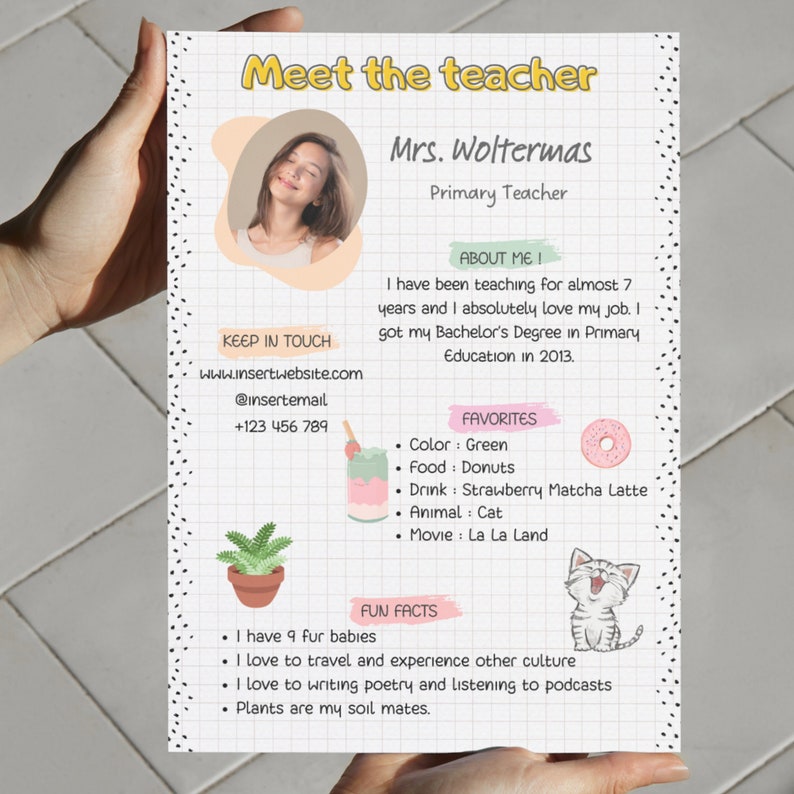 Meet the teacher
Mrs. Woltermas
Primary Teacher
ABOUT ME !
I have been teaching for almost 7
years and I absolutely love my job. I
got my Bachelor's Degree in Primary
Education in 2013.
KEEP IN TOUCH
www.insertwebsite.com
@insertemail
+123 456 789
FAVORITES
• Color : Green
• Food : Donuts
• Drink : Strawberry Matcha Latte
• Animal : Cat
• Movie : La La Land
FUN FACTS
• I have 9 fur babies
• I love to travel and experience other culture
• I love to writing poetry and listening to podcasts
• Plants are my soil mates.